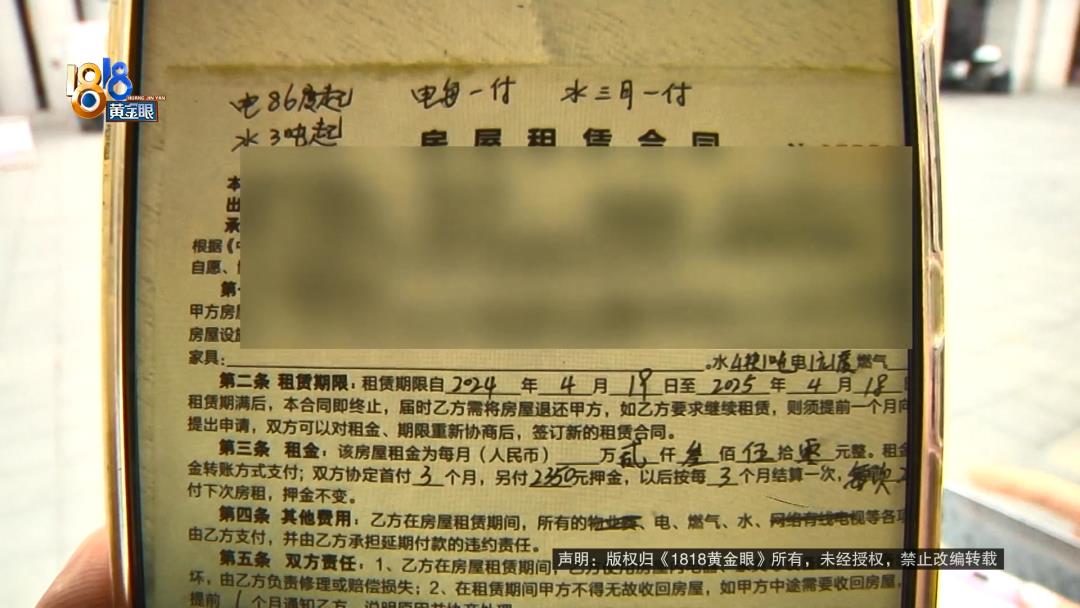 1818
HUANG JIN YAN
黄金眼
电86度起 电每一付 水三月一付
水3吨起
房屋租赁合同
本
出
承
根据《中
自愿、
第一
甲方房屋
房屋设施
家具: 。水4块1吨电1元1度燃气
第二条 租赁期限:租赁期限自2024年4月19日至2025年4月18日
租赁期满后,本合同即终止,届时乙方需将房屋退还甲方,如乙方要求继续租赁,则须提前一个月向
提出申请,双方可以对租金、期限重新协商后,签订新的租赁合同。
第三条 租金:该房屋租金为每月(人民币) 万贰仟叁佰伍拾零元整。租金
金转账方式支付;双方协定首付3个月,另付2350元押金,以后按每3个月结算一次,每次
付下次房租,押金不变。
第四条 其他费用:乙方在房屋租赁期间,所有的物业费、电、燃气、水、网络有线电视等各项
由乙方支付,并由乙方承担延期付款的违约责任。
第五条 双方责任:1、乙方在房屋租赁期间,
坏,由乙方负责修理或赔偿损失;2、在租赁期间甲方不得无故收回房屋,如甲方中途需要收回房屋,
提前1个月通知乙方,说明原因并协商处理
声明:版权归《1818黄金眼》所有,未经授权,禁止改编转载